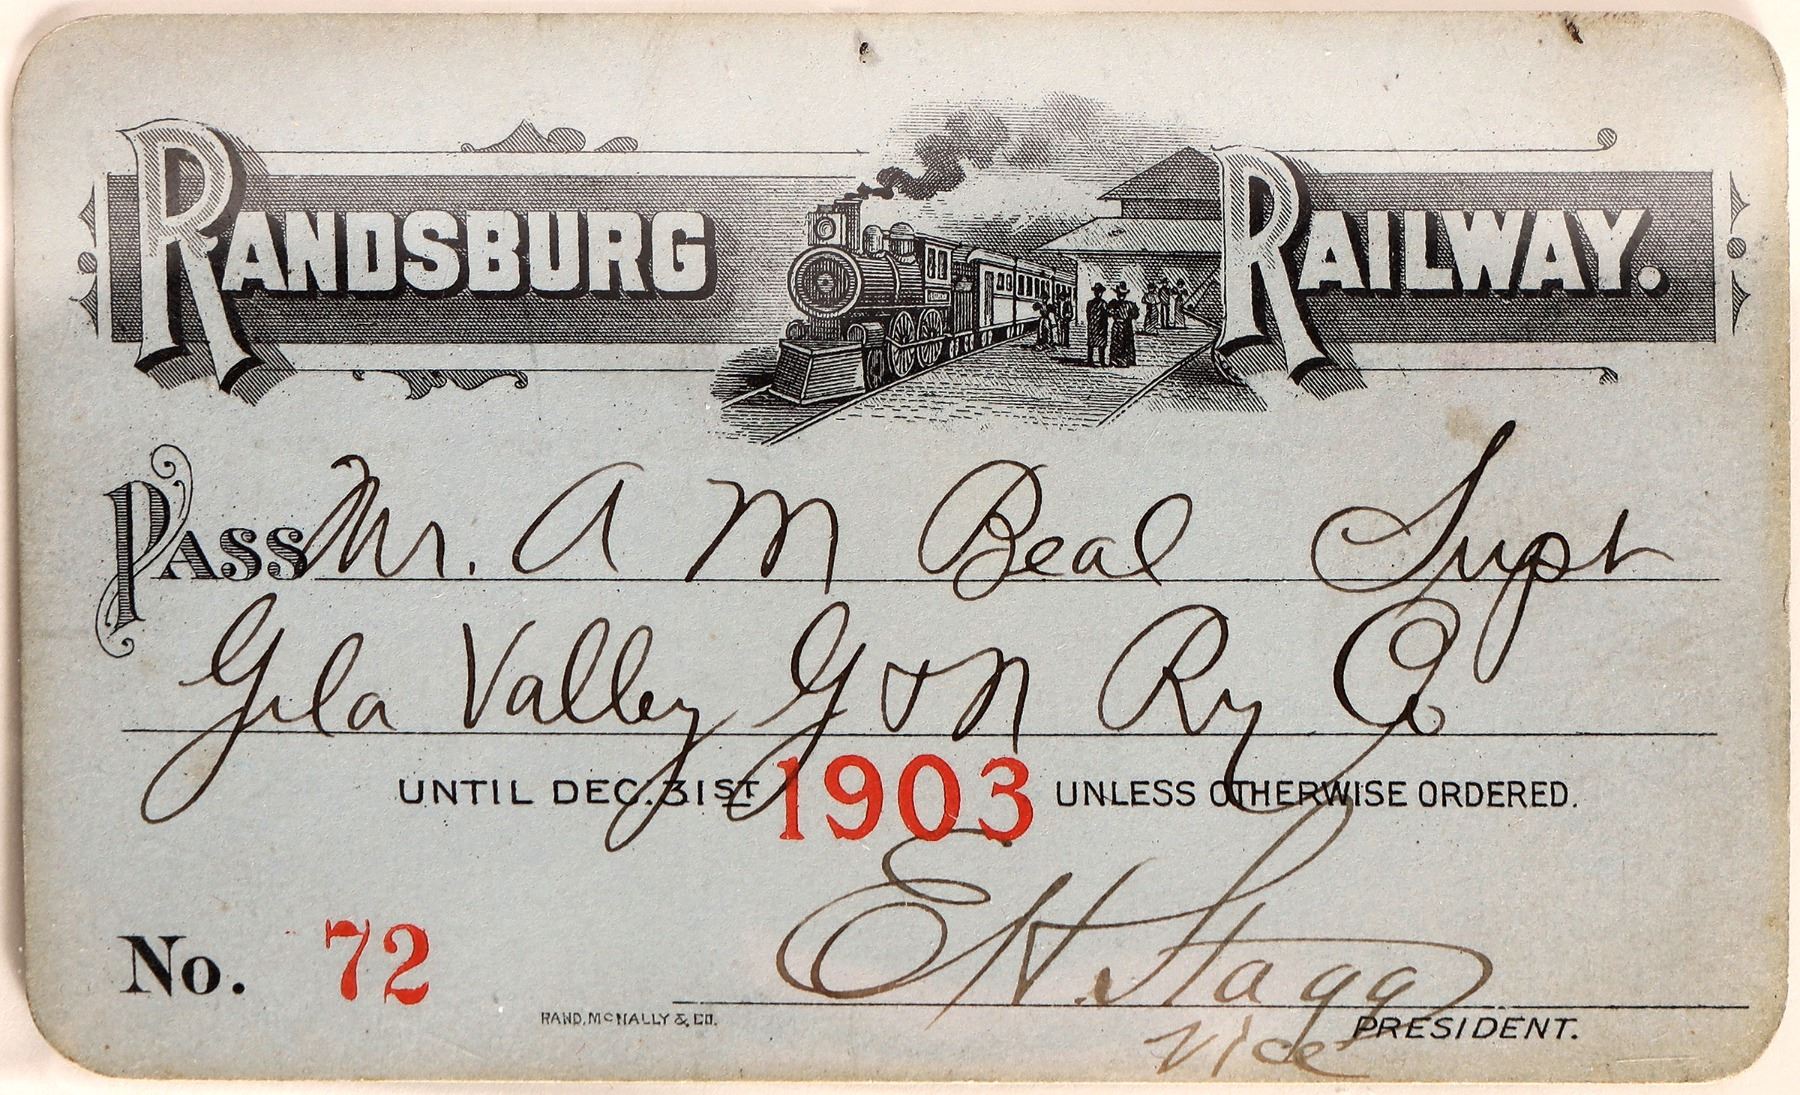 RANDSBURG RAILWAY.
PASS Mr. A M Beal Supt
Gila Valley G & N Ry Co
UNTIL DEC. 31ST 1903 UNLESS OTHERWISE ORDERED.
E H. Stagg
No. 72
RAND, MCNALLY & CO.
PRESIDENT.
Vice